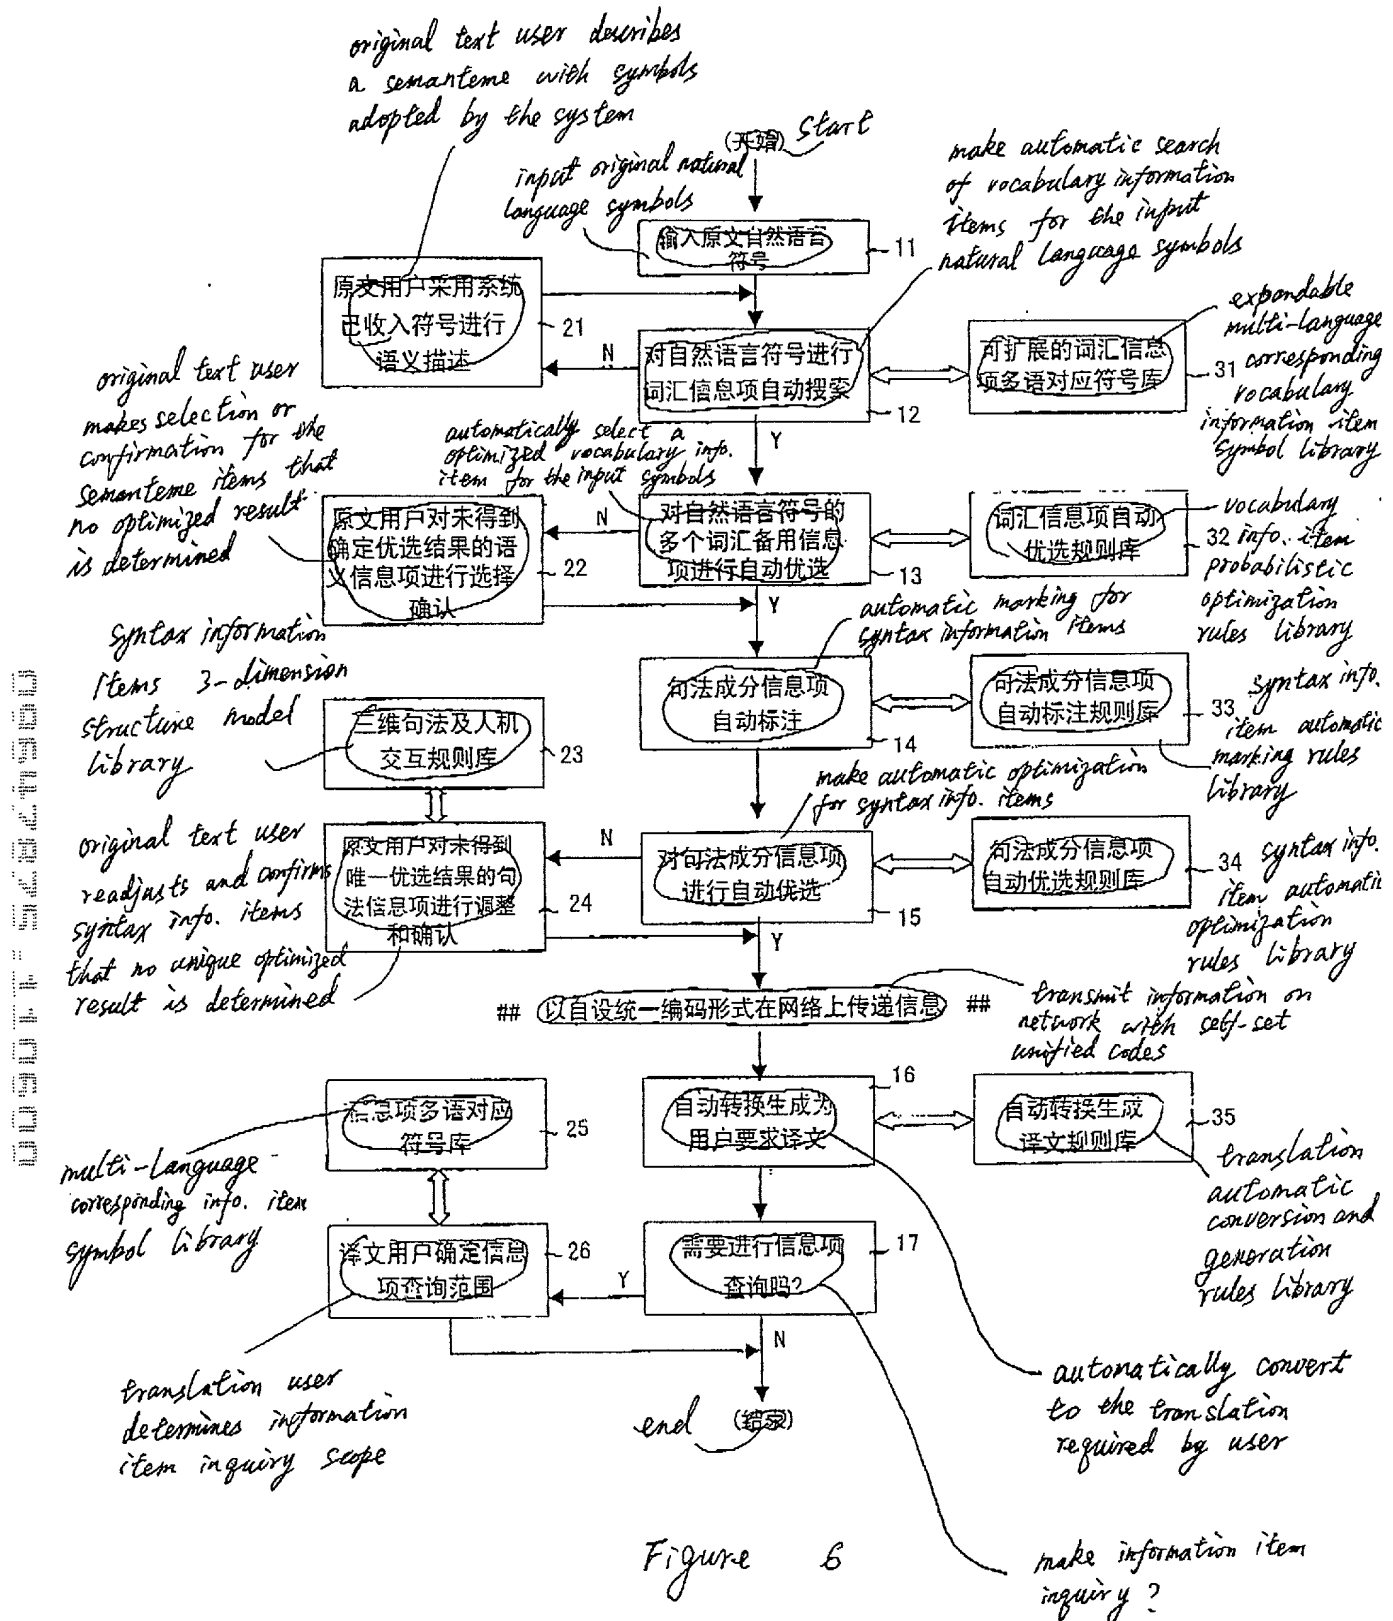 original text user describes
a semanteme with symbols
adopted by the system
(开始) start
input original natural
language symbols
make automatic search
of vocabulary information
items for the input
natural language symbols
输入原文自然语言
符号
11
原文用户采用系统
已收入符号进行
语义描述
21
N
对自然语言符号进行
词汇信息项自动搜索
12
可扩展的词汇信息
项多语对应符号库
31
expandable
multi-language
corresponding
vocabulary
information item
symbol library
Y
original text user
makes selection or
confirmation for the
semanteme items that
no optimized result
is determined
automatically select a
optimized vocabulary info.
item for the input symbols
原文用户对未得到
确定优选结果的语
义信息项进行选择
确认
22
N
对自然语言符号的
多个词汇备用信息
项进行自动优选
13
词汇信息项自动
优选规则库
32
vocabulary
info. item
probabilistic
optimization
rules library
Y
automatic marking for
syntax information items
syntax information
items 3-dimension
structure model
library
三维句法及人机
交互规则库
23
句法成分信息项
自动标注
14
句法成分信息项
自动标注规则库
33
syntax info.
item automatic
marking rules
library
make automatic optimization
for syntax info. items
original text user
readjusts and confirms
syntax info. items
that no unique optimized
result is determined
原文用户对未得到
唯一优选结果的句
法信息项进行调整
和确认
24
N
对句法成分信息项
进行自动优选
15
句法成分信息项
自动优选规则库
34
syntax info.
item automatic
optimization
rules library
Y
## 以自设统一编码形式在网络上传递信息 ##
transmit information on
network with self-set
unified codes
信息项多语对应
符号库
25
自动转换生成为
用户要求译文
16
自动转换生成
译文规则库
35
translation
automatic
conversion and
generation
rules library
multi-language
corresponding info. item
symbol library
译文用户确定信息
项查询范围
26
Y
需要进行信息项
查询吗?
17
N
translation user
determines information
item inquiry scope
end (结束)
automatically convert
to the translation
required by user
make information item
inquiry?
Figure 6